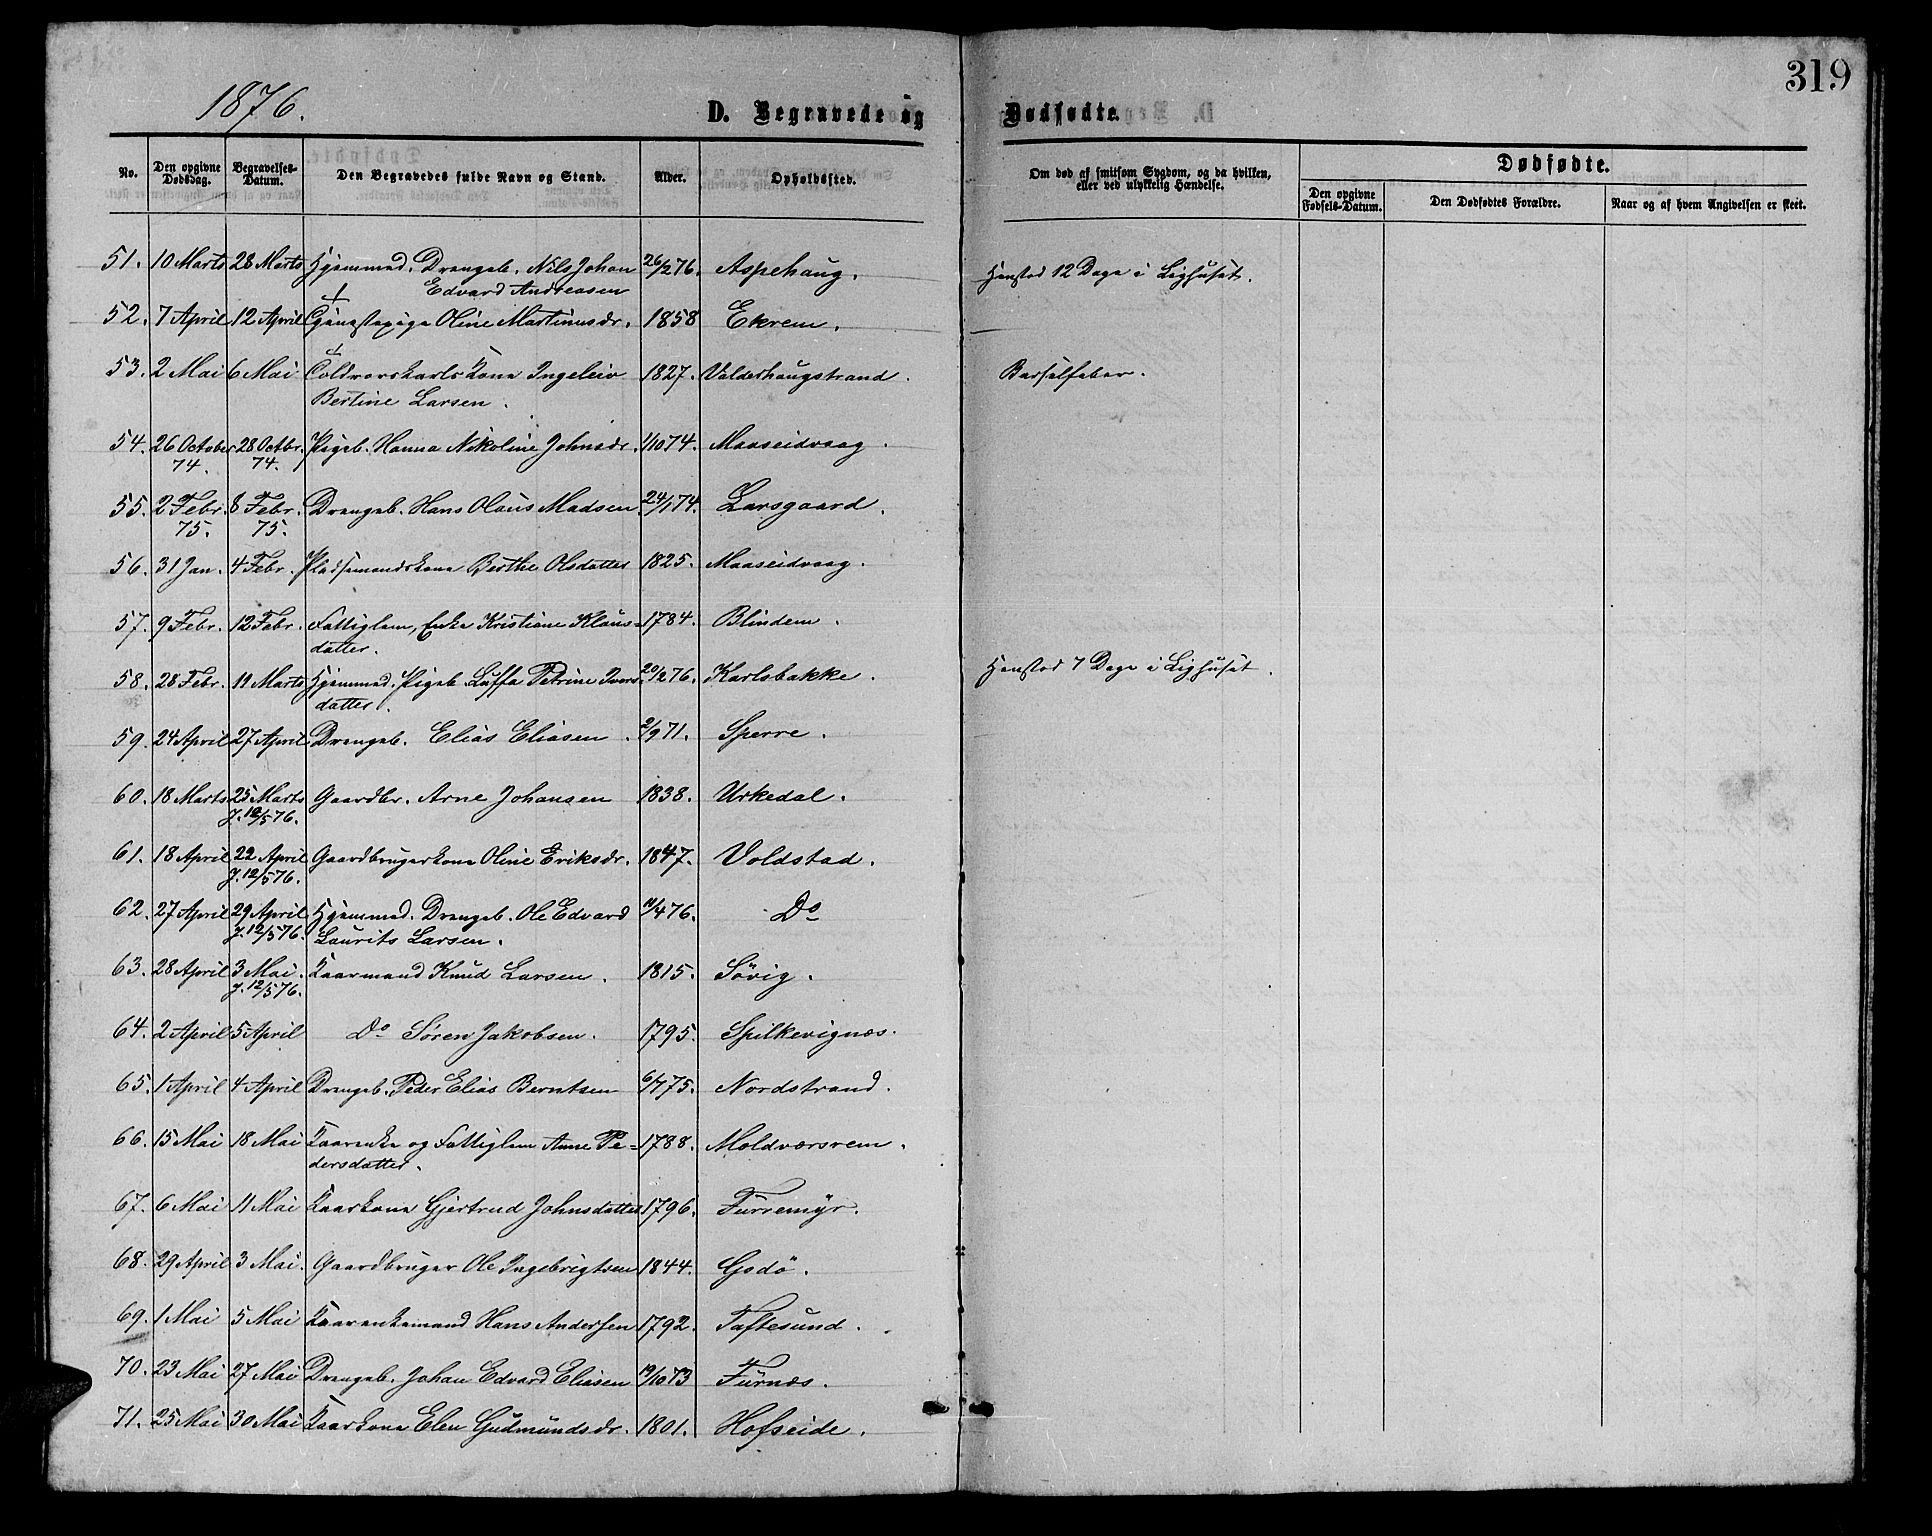 319
1876.
D. Begravede og Dødfødte.
No. Den opgivne Dødsdag. Begravelses-Datum. Den Begravedes fulde Navn og Stand. Alder. Opholdssted. Om død af smitsom Sygdom, og da hvilken, eller ved ulykkelig Hændelse. Dødfødte.
Den opgivne Fødsels-Datum. Den Dødfødtes Forældre. Naar og af hvem Angivelsen er skeet.
51. 10 Marts 28 Marts Hjemmed. Drengeb. Nils Johan 26/2 76. Aspehaug. Henstod 12 Dage i Lighuset.
Edvard Andreasen
52. 7 April 12 April Tjenestepige Oline Martinusdr. 1858 Ekrem.
53. 2 Mai 6 Mai Toldrorskarls Kone Ingeleiv 1827. Valderhaugstrand. Barselfeber.
Bertine Larsen.
54. 26 October 28 Octbr. Pigeb. Hanna Nikoline Johnsdr. 1/10 74. Maaseidvaag.
74. 74.
55. 2 Febr. 8 Febr. Drengeb. Hans Olaus Madsen. 24/1 74. Larsgaard.
75. 75.
56. 31 Jan. 4 Febr. Pladsemandskone Berthe Olsdatter 1825. Maaseidvaag.
57. 9 Febr. 12 Febr. Fattiglem, Enke Kristiane Klaus= 1784. Blindem.
datter.
58. 28 Febr. 11 Marts Hjemmed. Pigeb. Luffa Petrine Ivers 20/2 76. Karlsbakke. Henstod 7 Dage i Lighuset.
datter.
59. 24 April 27 April Drengeb. Elias Eliasen. 2/9 71. Sperre.
60. 18 Marts 25 Marts Gaardbr. Arne Johansen 1838. Urkedal.
J. 12/5 76.
61. 18 April 22 April Gaardbrugerkone Oline Eriksdr. 1847. Voldstad.
J. 12/5 76.
62. 27 April 29 April Hjemmed. Drengeb. Ole Edvard 11/4 76. Do
J. 12/5 76. Laurits Larsen.
63. 28 April 3 Mai. Kaarmand Knud Larsen. 1815. Søvig.
J. 12/5 76.
64. 2 April 5 April Do Søren Jakobsen. 1795. Spilkevignæs.
65. 1 April 4 April Drengeb. Peder Elias Berntsen 6/7 75. Nordstrand.
66. 15 Mai 18 Mai Kaarenke og Fattiglem Anne Pe= 1788. Moldværsrem.
dersdatter.
67. 6 Mai 11 Mai Kaarkone Gjertrud Johnsdatter 1796. Furremyr.
68. 29 April 3 Mai. Gaardbruger Ole Ingebrigtsen 1844. Godø.
69. 1 Mai 5 Mai Kaarenkemand Hans Andersen 1792. Taftesund.
70. 23 Mai 27 Mai Drengeb. Johan Edvard Eliasen 19/10 73 Furnæs.
71. 25 Mai 30 Mai Kaarkone Elen Gudmundsdr. 1801. Hofseide.